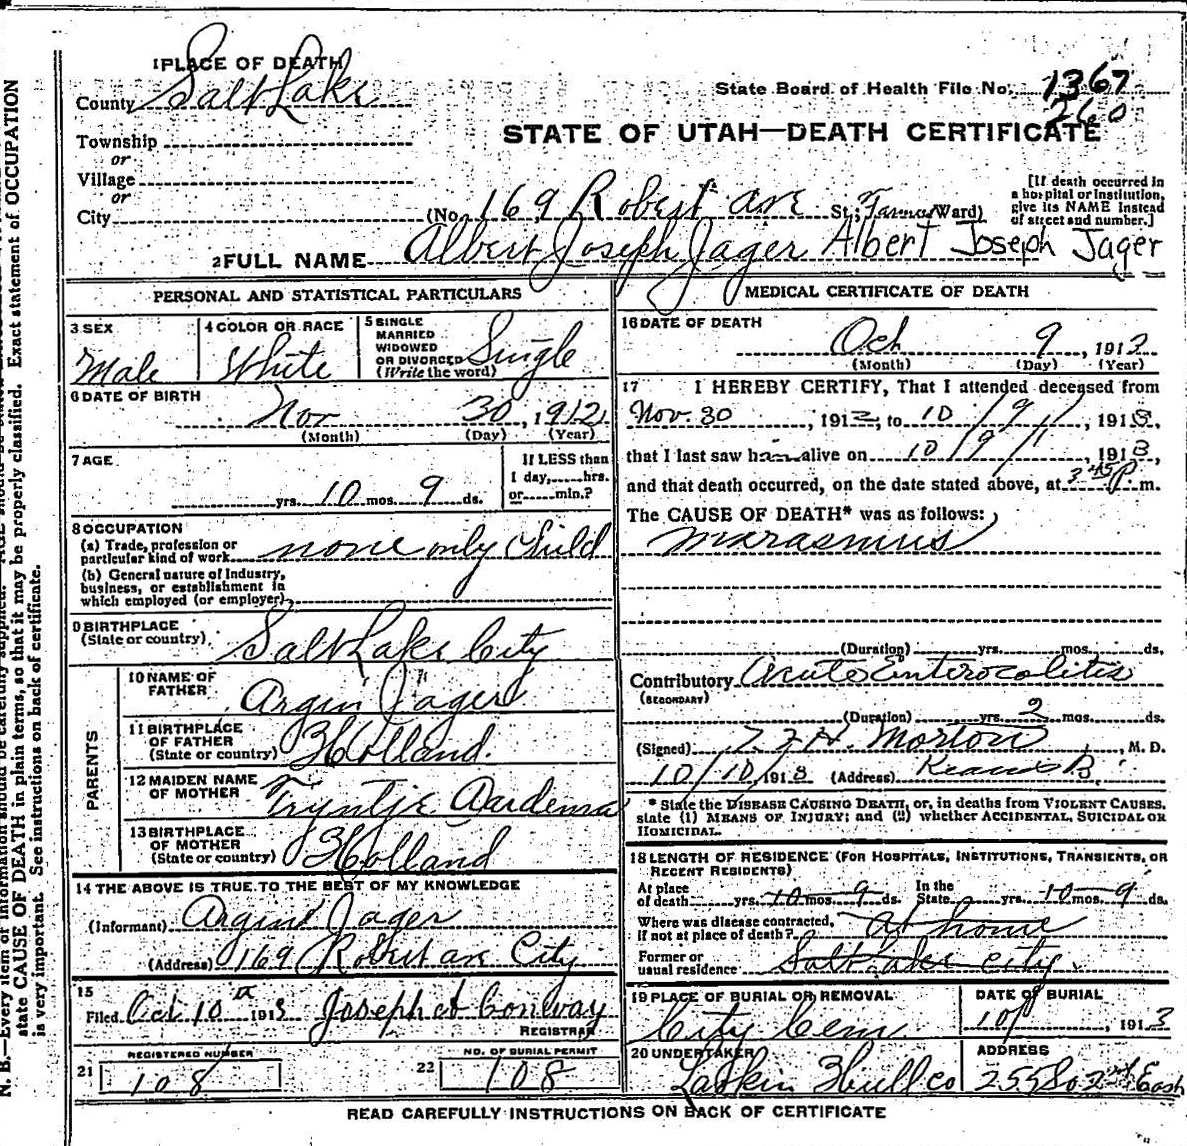 1 PLACE OF DEATH
County Salt Lake
State Board of Health File No. 1367
260
STATE OF UTAH—DEATH CERTIFICATE
Township
or
Village
or
City
(No. 169 Robert Ave St.; Farmers Ward)
[If death occurred in
a hospital or institution,
give its NAME instead
of street and number.]
2 FULL NAME Albert Joseph Jager Albert Joseph Jager
PERSONAL AND STATISTICAL PARTICULARS
3 SEX
Male
4 COLOR OR RACE
White
5 SINGLE
MARRIED
WIDOWED
OR DIVORCED
(Write the word)
Single
6 DATE OF BIRTH
Nov 30, 1912
(Month) (Day) (Year)
7 AGE
yrs. 10 mos. 9 ds.
If LESS than
1 day, hrs.
or min.?
8 OCCUPATION
(a) Trade, profession or
particular kind of work none only child
(b) General nature of Industry,
business, or establishment in
which employed (or employer)
9 BIRTHPLACE
(State or country) Salt Lake City
PARENTS
10 NAME OF
FATHER
Jager
11 BIRTHPLACE
OF FATHER
(State or country) Holland
12 MAIDEN NAME
OF MOTHER Tryntje Aardema
13 BIRTHPLACE
OF MOTHER
(State or country) Holland
14 THE ABOVE IS TRUE TO THE BEST OF MY KNOWLEDGE
(Informant) Jager
(Address) 169 Robert ave City
15
Filed Oct 10th 1913 Joseph H Conway
REGISTRAR
REGISTERED NUMBER
21 108
NO. OF BURIAL PERMIT
22 108
MEDICAL CERTIFICATE OF DEATH
16 DATE OF DEATH
Oct 9, 1913
(Month) (Day) (Year)
17 I HEREBY CERTIFY, That I attended deceased from
Nov. 30, 1912, to 10/9/, 1913,
that I last saw him alive on 10/9/, 1913,
and that death occurred, on the date stated above, at 3 45 P. m.
The CAUSE OF DEATH* was as follows:
Marasmus
(Duration) yrs. mos. ds.
Contributory Acute Enterocolitis
(SECONDARY)
(Duration) yrs. 2 mos. ds.
(Signed) Morton, M. D.
10/10/1913 (Address) Kearns B.
* State the DISEASE CAUSING DEATH, or, in deaths from VIOLENT CAUSES,
state (1) MEANS OF INJURY; and (2) whether ACCIDENTAL, SUICIDAL OR
HOMICIDAL.
18 LENGTH OF RESIDENCE (FOR HOSPITALS, INSTITUTIONS, TRANSIENTS, OR
RECENT RESIDENTS)
At place
of death yrs. 10 mos. 9 ds.
In the
State yrs. 10 mos. 9 ds.
Where was disease contracted,
if not at place of death? At home
Former or
usual residence Salt Lake City.
19 PLACE OF BURIAL OR REMOVAL
City Cem
DATE OF BURIAL
10/, 1913
20 UNDERTAKER
Larkin Hull Co
ADDRESS
255 So 2nd East
READ CAREFULLY INSTRUCTIONS ON BACK OF CERTIFICATE
N. B.—Every item of information should be carefully supplied. AGE should be stated. Exact statement of OCCUPATION
state CAUSE OF DEATH in plain terms, so that it may be properly classified.
is very important. See instructions on back of certificate.